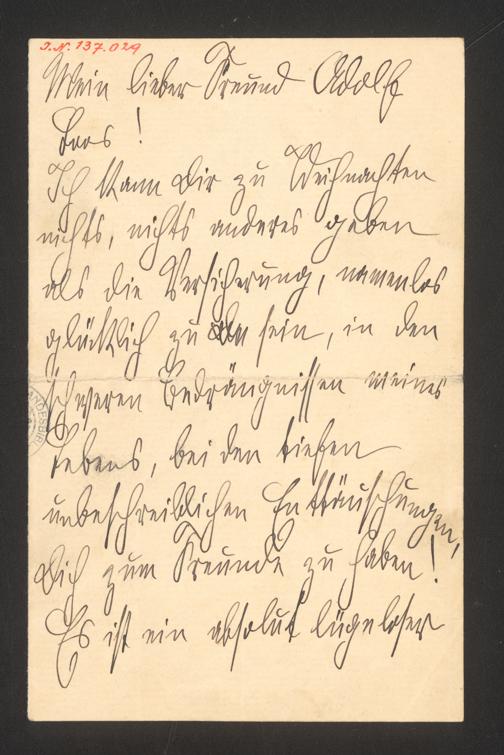 J.N. 137.029
Mein lieber Freund Adolf
Loos!
Ich kann Dir zu Weihnachten
nichts, nichts anderes geben
als die Versicherung, namenlos
glücklich zu sein, in den
schweren Bedrängnissen meines
Lebens, bei den tiefen
unbeschreiblichen Enttäuschungen,
Dich zum Freunde zu haben!
Es ist ein absolut lügenloser